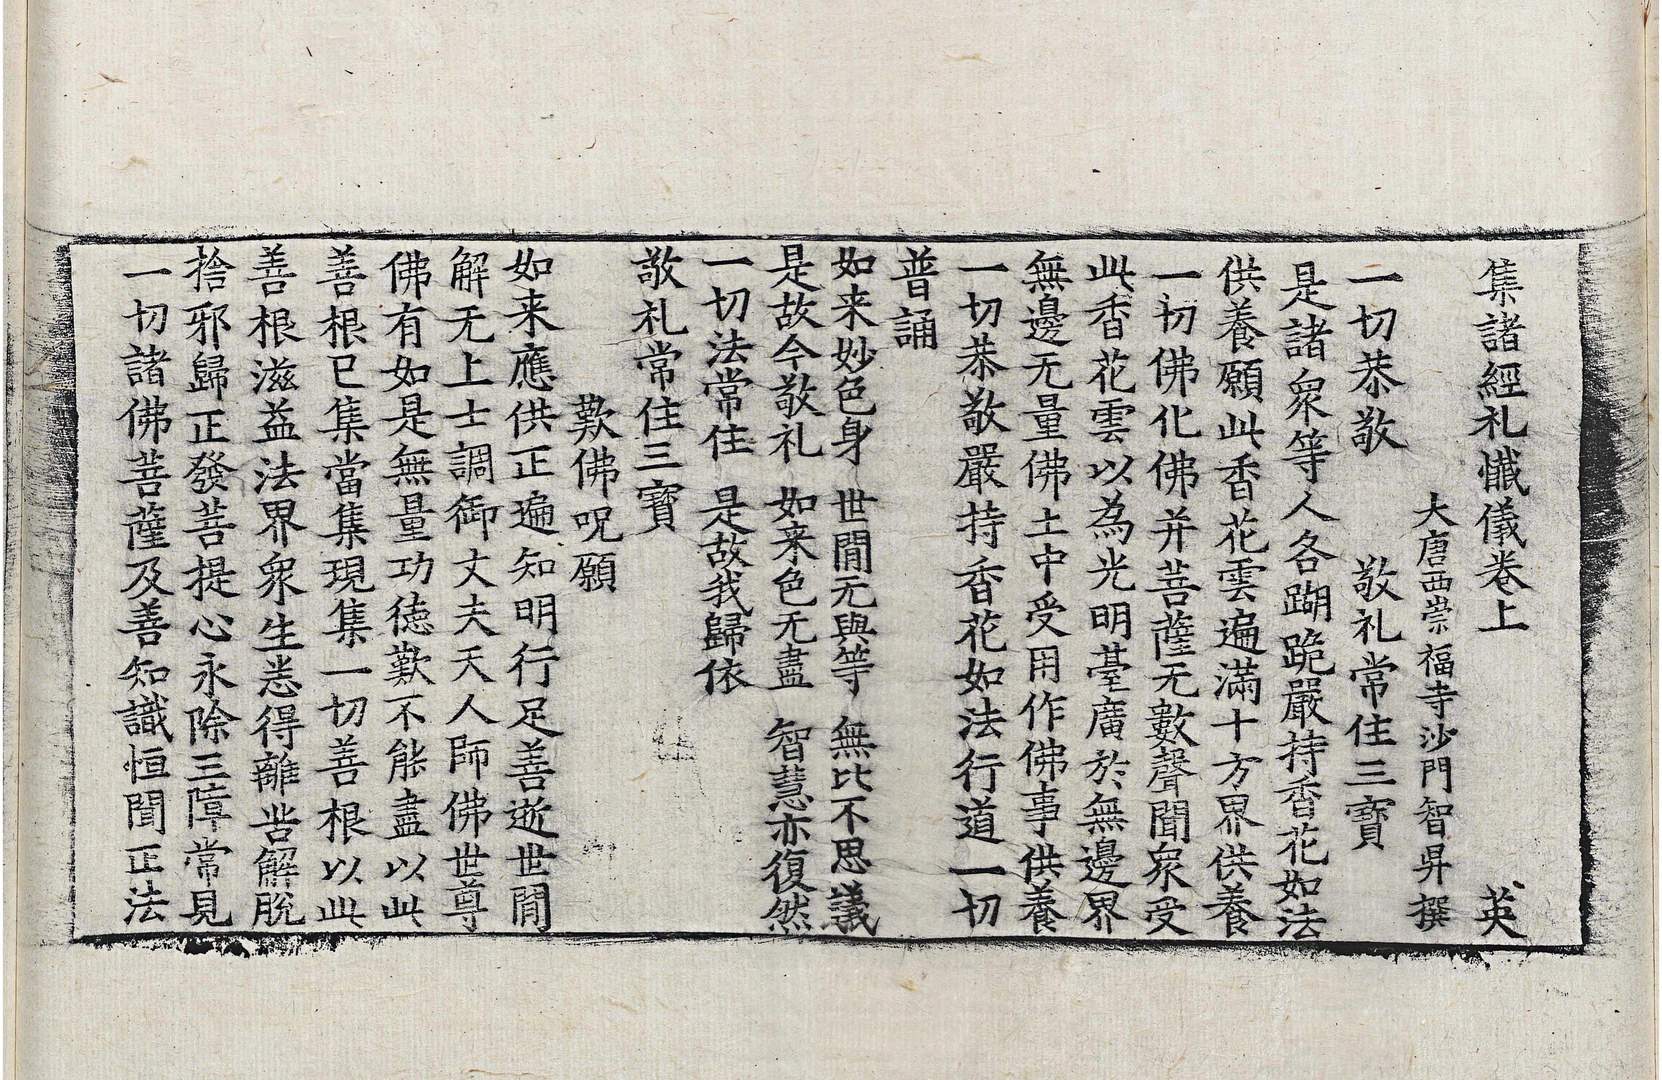 集諸經礼懺儀卷上 英
大唐西崇福寺沙門智昇撰
一切恭敬 敬礼常住三寶
是諸衆等人各䠒跪嚴持香花如法
供養願此香花雲遍滿十方界供養
一切佛化佛并菩薩无數聲聞衆受
此香花雲以為光明臺廣於無邊界
無邊无量佛土中受用作佛事供養
一切恭敬嚴持香花如法行道一切
普誦
如来妙色身 世間无與等 無比不思議
是故今敬礼 如来色无盡 智慧亦復然
一切法常住 是故我歸依
敬礼常住三寶
歎佛呪願
如来應供正遍知明行足善逝世間
解无上士調御丈夫天人師佛世尊
佛有如是無量功德歎不能盡以此
善根已集當集現集一切善根以此
善根滋益法界衆生悉得離苦解脫
捨邪歸正發菩提心永除三障常見
一切諸佛菩薩及善知識恒聞正法